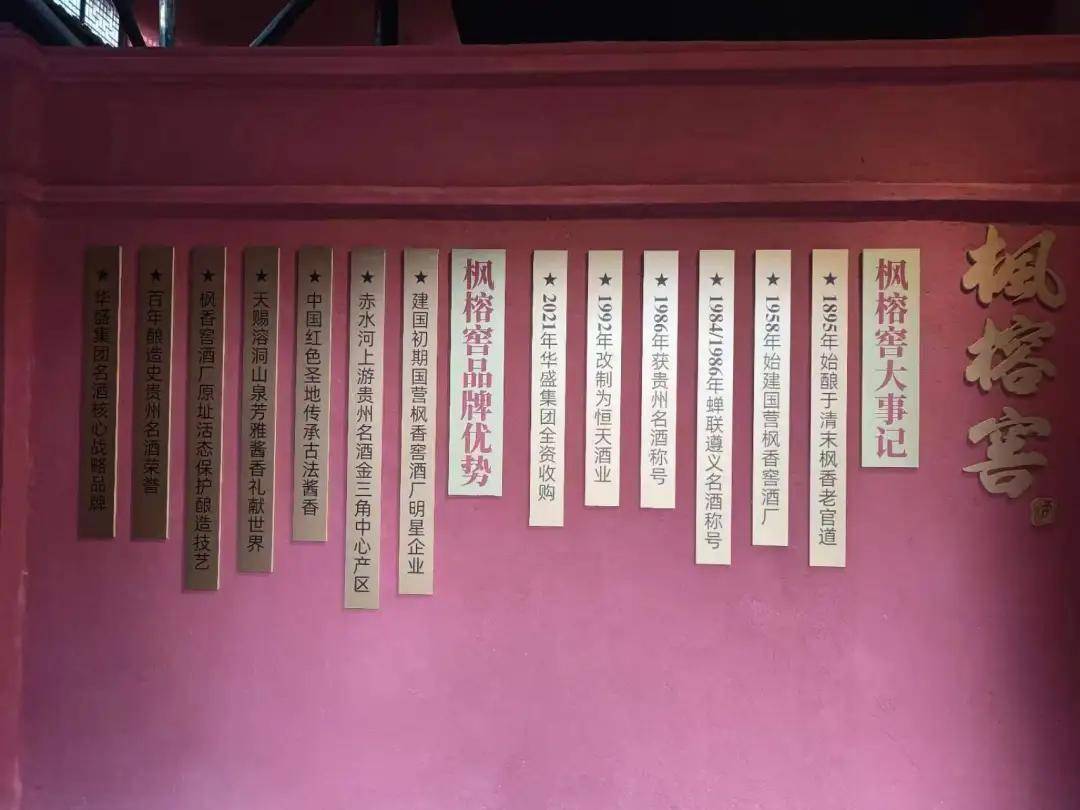 枫榕窖
枫榕窖大事记
★ 1895年始酿于清末枫香老官道
★ 1958年始建国营枫香窖酒厂
★ 1984/1986年蝉联遵义名酒称号
★ 1986年获贵州名酒称号
★ 1992年改制为恒天酒业
★ 2021年华盛集团全资收购
枫榕窖品牌优势
★ 建国初期国营枫香窖酒厂明星企业
★ 赤水河上游贵州名酒金三角中心产区
★ 中国红色圣地传承古法酱香
★ 天赐溶洞山泉芳雅酱香礼献世界
★ 枫香窖酒厂原址活态保护酿造技艺
★ 百年酿造史贵州名酒荣誉
★ 华盛集团名酒核心战略品牌